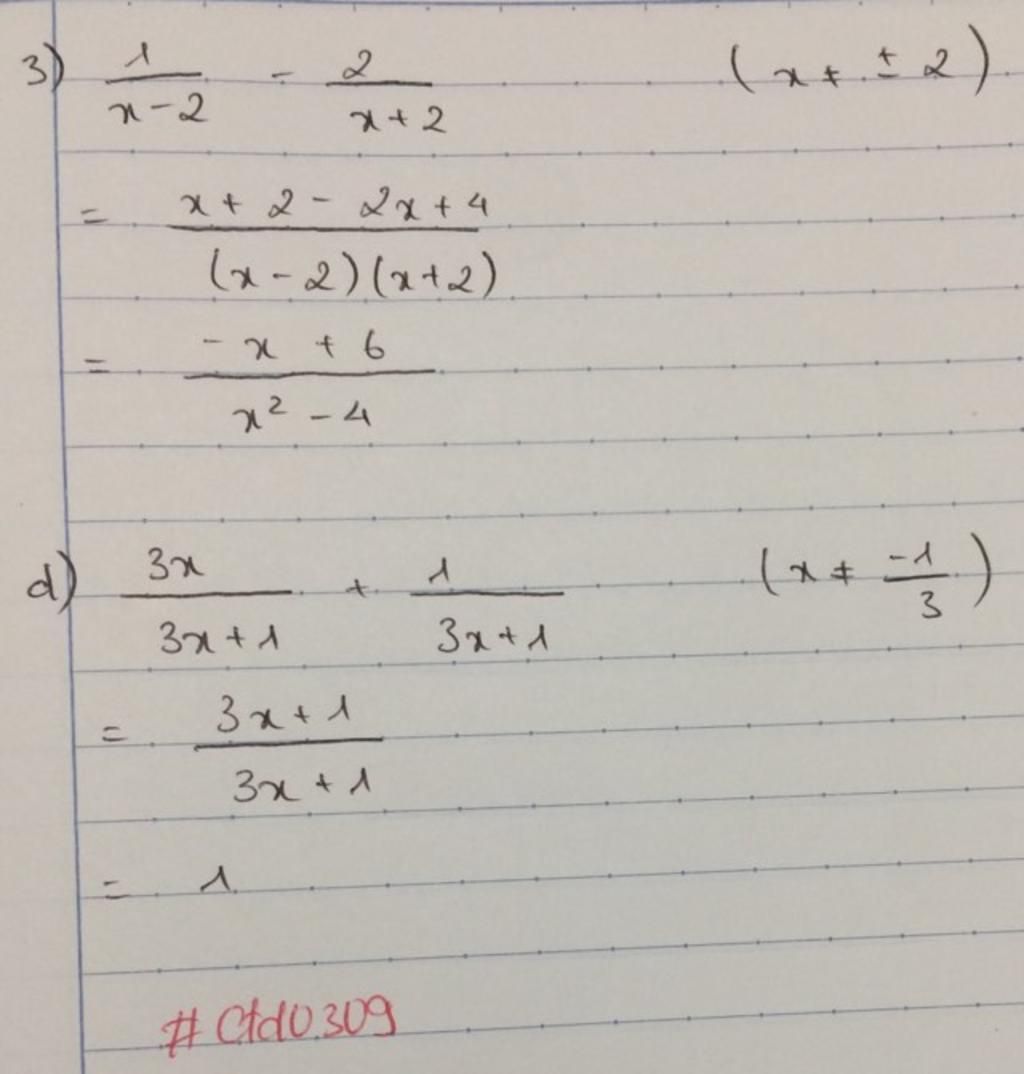 3) 1/(x-2) - 2/(x+2) (x ≠ ± 2)
= (x + 2 - 2x + 4)/((x - 2)(x + 2))
= (- x + 6)/(x² - 4)
d) 3x/(3x + 1) + 1/(3x + 1) (x ≠ -1/3)
= (3x + 1)/(3x + 1)
= 1
#Ctd0309